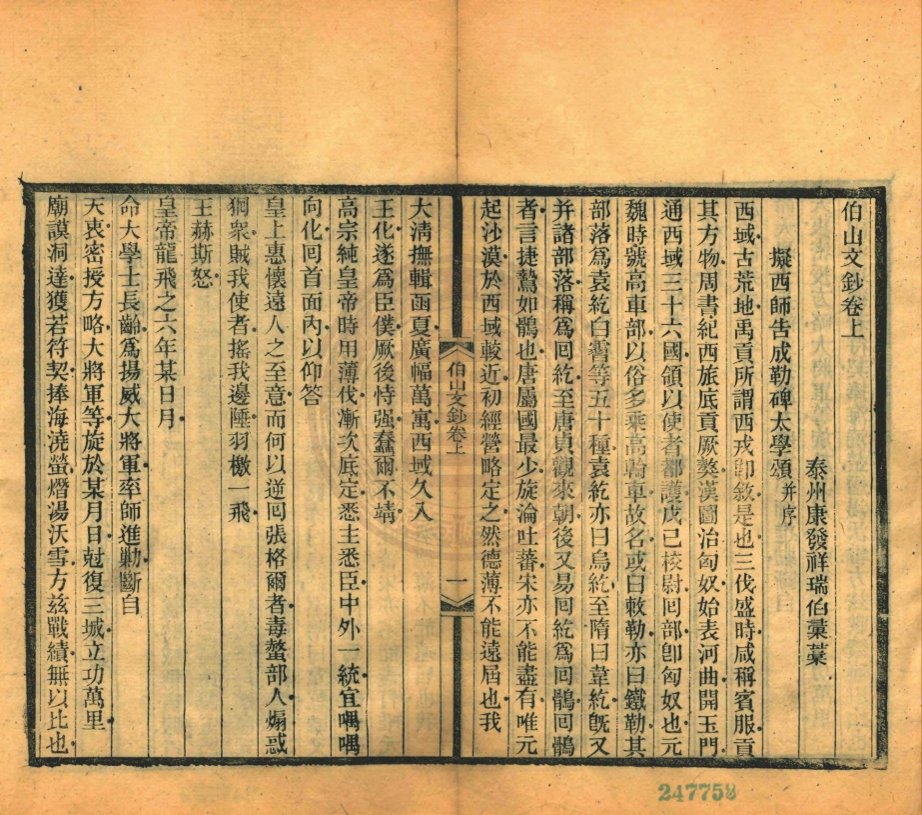 伯山文鈔卷上
泰州康發祥瑞伯藁藁
擬西師告成勒碑太學頌并序
西域古荒地禹貢所謂西戎卽敘是也三伐盛時咸稱賓服貢
其方物周書紀西旅底貢厥獒漢圖治匈奴始表河曲開玉門
通西域三十六國領以使者都護戊己校尉回部卽匈奴也元
魏時號高車部以俗多乘高輪車故名或曰敕勒亦曰鐵勒其
部落爲袁紇白霫等五十種袁紇亦曰烏紇至隋曰韋紇旣又
并諸部落稱爲回紇至唐貞觀來朝後又易回紇爲回鶻回鶻
者言捷鷙如鶻也唐屬國最少旋淪吐蕃宋亦不能盡有唯元
起沙漠於西域較近初經營略定之然德薄不能遠屆也我
伯山文鈔卷上
一
大淸撫輯函夏廣幅萬寓西域久入
王化遂爲臣僕厥後恃强蠢爾不靖
高宗純皇帝時用薄伐漸次底定悉主悉臣中外一統宜喁喁
向化回首面內以仰答
皇上惠懷遠人之至意而何以逆回張格爾者毒螫部人煽惑
猘衆賊我使者搖我邊陲羽檄一飛
王赫斯怒
皇帝龍飛之六年某日月
命大學士長齡爲揚威大將軍率師進勦斷自
天衷密授方略大將軍等旋於某月日尅復三城立功萬里
廟謨洞達獲若符契捧海澆螢熸湯沃雪方兹戰績無以比也
247758